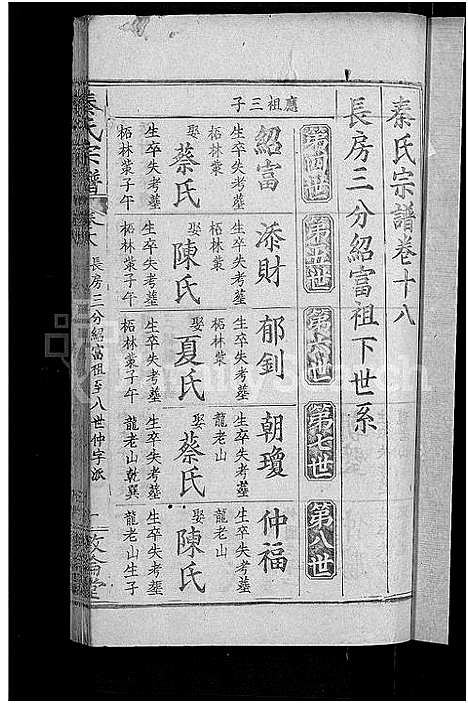 秦氏宗譜卷十八
長房三分紹富祖下世系
第四世
第五世
第六世
第七世
第八世
應祖三子
紹富
生卒失考塟
柘林
娶蔡氏
生卒失考塟
柘林 子午
添財
生卒失考塟
柘林
娶陳氏
生卒失考塟
柘林 子午
郁釗
生卒失考塟
柘林
娶夏氏
生卒失考塟
柘林 子午
朝瓊
生卒失考塟
龍老山
娶蔡氏
生卒失考塟
龍老山乾巽
仲福
生卒失考塟
龍老山
娶陳氏
生卒失考塟
龍老山生子
秦氏宗譜
長房三分紹富祖至八世仲字派
敦倫堂